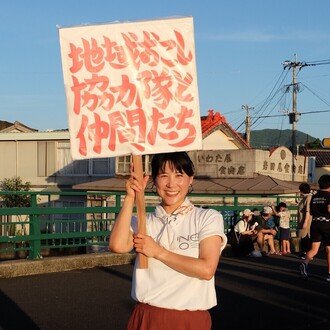 地域おこし
協力隊と
仲間たち